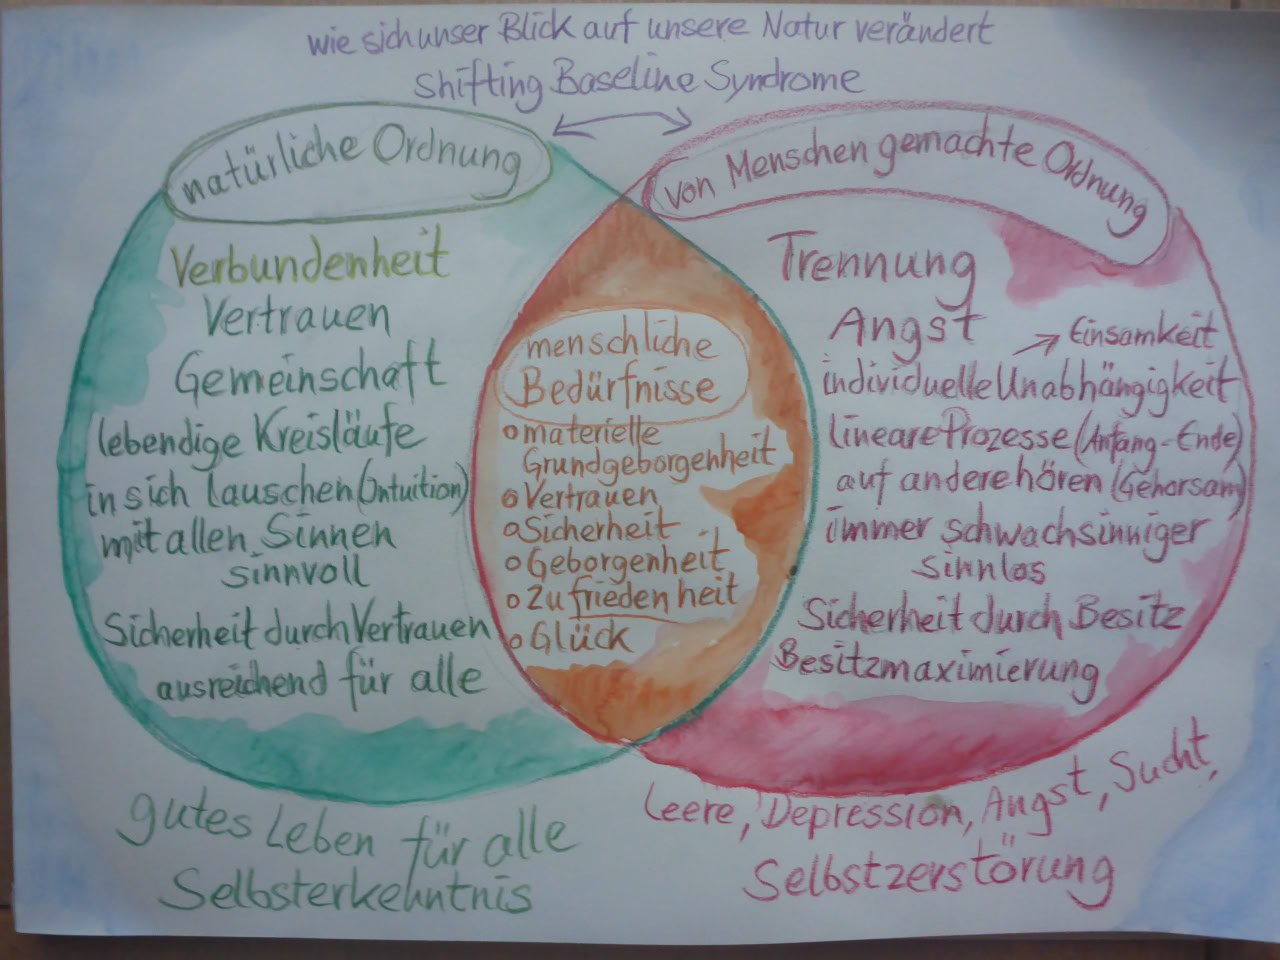 wie sich unser Blick auf unsere Natur verändert
Shifting Baseline Syndrome
natürliche Ordnung
Verbundenheit
Vertrauen
Gemeinschaft
lebendige Kreisläufe
in sich lauschen (Intuition)
mit allen Sinnen
sinnvoll
Sicherheit durch Vertrauen
ausreichend für alle
gutes Leben für alle
Selbsterkenntnis
menschliche
Bedürfnisse
materielle
Grundgeborgenheit
Vertrauen
Sicherheit
Geborgenheit
Zufriedenheit
Glück
von Menschen gemachte Ordnung
Trennung
Angst
→ Einsamkeit
individuelle Unabhängigkeit
lineare Prozesse (Anfang-Ende)
auf andere hören (Gehorsam)
immer schwachsinniger
sinnlos
Sicherheit durch Besitz
Besitzmaximierung
Leere, Depression, Angst, Sucht,
Selbstzerstörung